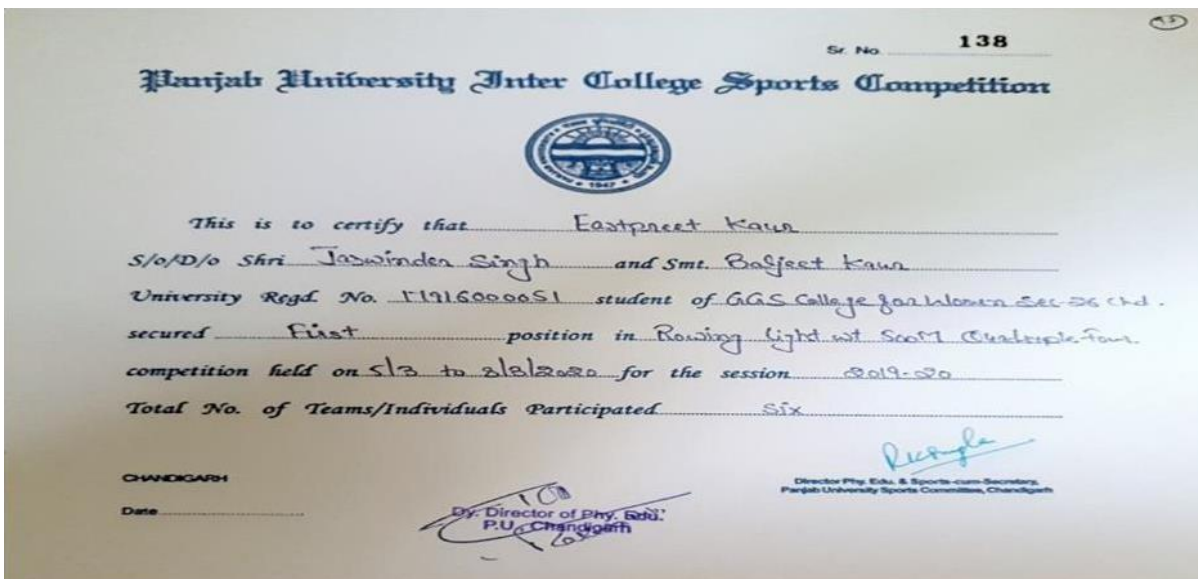 Sr. No. 138
Panjab University Inter College Sports Competition
1947
This is to certify that Eastpreet Kaur
S/o/D/o Shri Jaswinder Singh and Smt. Baljeet Kaur
University Regd. No. 17916000051 student of GGS College for Women Sec-26 Chd.
secured First position in Rowing light wt 500M Quadruple four
competition held on 5/3 to 8/3/2020 for the session 2019-20
Total No. of Teams/Individuals Participated Six
CHANDIGARH
Director Phy. Edu. & Sports-cum-Secretary,
Panjab University Sports Committee, Chandigarh
Date
Dy. Director of Phy. Edu.
P.U., Chandigarh